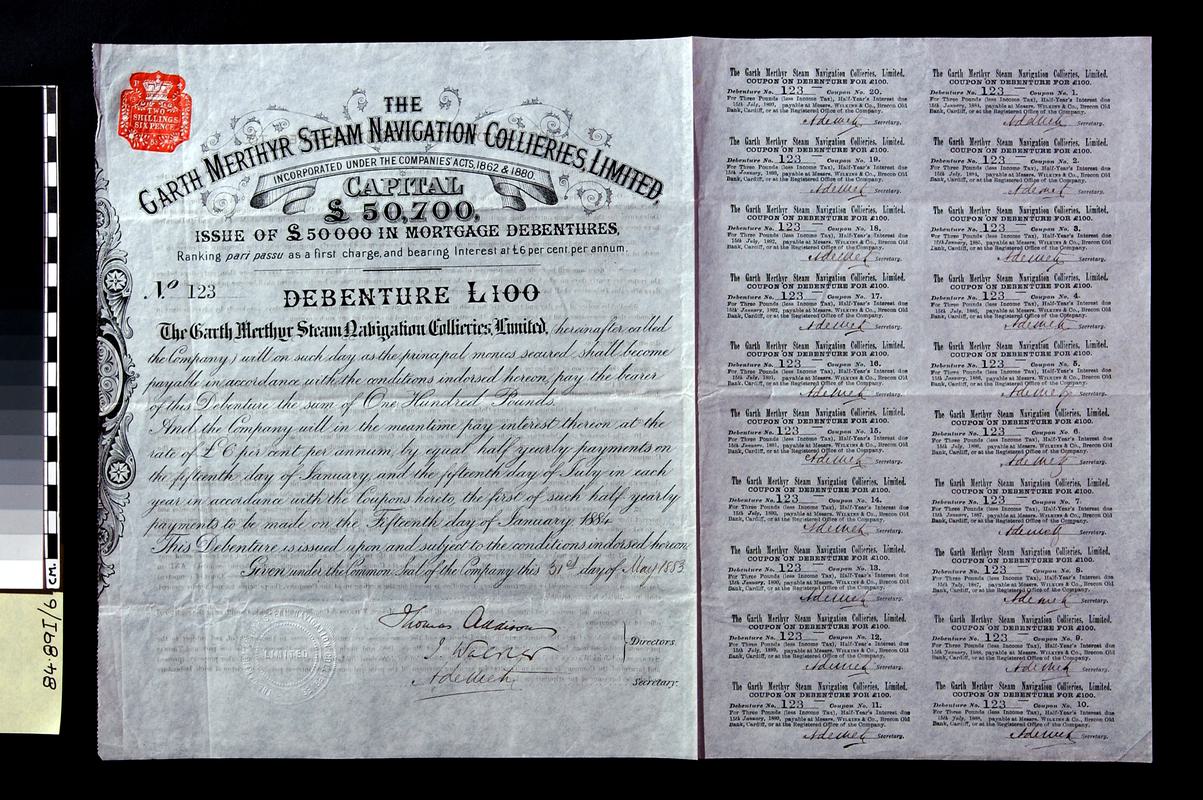 TWO
SHILLINGS
SIX PENCE
THE
GARTH MERTHYR STEAM NAVIGATION COLLIERIES, LIMITED,
INCORPORATED UNDER THE COMPANIES' ACTS, 1862 & 1880.
CAPITAL
£50,700,
ISSUE OF £50000 IN MORTGAGE DEBENTURES,
Ranking pari passu as a first charge, and bearing Interest at £6 per cent. per annum.
No 123 DEBENTURE £100
The Garth Merthyr Steam Navigation Collieries, Limited, hereinafter called
the Company) will on such day as the principal monies secured shall become
payable in accordance with the conditions indorsed hereon, pay the bearer
of this Debenture the sum of One Hundred Pounds.
And the Company will in the meantime pay interest thereon at the
rate of £6 per cent per annum, by equal half yearly payments on
the fifteenth day of January and the fifteenth day of July in each
year in accordance with the Coupons hereto, the first of such half yearly
payments to be made on the Fifteenth day of January 1884
This Debenture is issued upon and subject to the conditions indorsed hereon.
Given under the Common Seal of the Company this 31st day of May 1883
LIMITED
Thomas Addison
Directors.
Secretary.
The Garth Merthyr Steam Navigation Collieries, Limited.
COUPON ON DEBENTURE FOR £100.
Debenture No. 123 Coupon No. 20.
For Three Pounds (less Income Tax), Half-Year's Interest due
15th July, 1893, payable at Messrs. WILKINS & Co., Brecon Old
Bank, Cardiff, or at the Registered Office of the Company.
Secretary.
The Garth Merthyr Steam Navigation Collieries, Limited.
COUPON ON DEBENTURE FOR £100.
Debenture No. 123 Coupon No. 19.
For Three Pounds (less Income Tax), Half-Year's Interest due
15th January, 1893, payable at Messrs. WILKINS & Co., Brecon Old
Bank, Cardiff, or at the Registered Office of the Company.
Secretary.
The Garth Merthyr Steam Navigation Collieries, Limited.
COUPON ON DEBENTURE FOR £100.
Debenture No. 123 Coupon No. 18.
For Three Pounds (less Income Tax), Half-Year's Interest due
15th July, 1892, payable at Messrs. WILKINS & Co., Brecon Old
Bank, Cardiff, or at the Registered Office of the Company.
Secretary.
The Garth Merthyr Steam Navigation Collieries, Limited.
COUPON ON DEBENTURE FOR £100.
Debenture No. 123 Coupon No. 17.
For Three Pounds (less Income Tax), Half-Year's Interest due
15th January, 1892, payable at Messrs. WILKINS & Co., Brecon Old
Bank, Cardiff, or at the Registered Office of the Company.
Secretary.
The Garth Merthyr Steam Navigation Collieries, Limited.
COUPON ON DEBENTURE FOR £100.
Debenture No. 123 Coupon No. 16.
For Three Pounds (less Income Tax), Half-Year's Interest due
15th July, 1891, payable at Messrs. WILKINS & Co., Brecon Old
Bank, Cardiff, or at the Registered Office of the Company.
Secretary.
The Garth Merthyr Steam Navigation Collieries, Limited.
COUPON ON DEBENTURE FOR £100.
Debenture No. 123 Coupon No. 15.
For Three Pounds (less Income Tax), Half-Year's Interest due
15th January, 1891, payable at Messrs. WILKINS & Co., Brecon Old
Bank, Cardiff, or at the Registered Office of the Company.
Secretary.
The Garth Merthyr Steam Navigation Collieries, Limited.
COUPON ON DEBENTURE FOR £100.
Debenture No. 123 Coupon No. 14.
For Three Pounds (less Income Tax), Half-Year's Interest due
15th July, 1890, payable at Messrs. WILKINS & Co., Brecon Old
Bank, Cardiff, or at the Registered Office of the Company.
Secretary.
The Garth Merthyr Steam Navigation Collieries, Limited.
COUPON ON DEBENTURE FOR £100.
Debenture No. 123 Coupon No. 13.
For Three Pounds (less Income Tax), Half-Year's Interest due
15th January, 1890, payable at Messrs. WILKINS & Co., Brecon Old
Bank, Cardiff, or at the Registered Office of the Company.
Secretary.
The Garth Merthyr Steam Navigation Collieries, Limited.
COUPON ON DEBENTURE FOR £100.
Debenture No. 123 Coupon No. 12.
For Three Pounds (less Income Tax), Half-Year's Interest due
15th July, 1889, payable at Messrs. WILKINS & Co., Brecon Old
Bank, Cardiff, or at the Registered Office of the Company.
Secretary.
The Garth Merthyr Steam Navigation Collieries, Limited.
COUPON ON DEBENTURE FOR £100.
Debenture No. 123 Coupon No. 11.
For Three Pounds (less Income Tax), Half-Year's Interest due
15th January, 1889, payable at Messrs. WILKINS & Co., Brecon Old
Bank, Cardiff, or at the Registered Office of the Company.
Secretary.
The Garth Merthyr Steam Navigation Collieries, Limited.
COUPON ON DEBENTURE FOR £100.
Debenture No. 123 Coupon No. 1.
For Three Pounds (less Income Tax), Half-Year's Interest due
15th January, 1884, payable at Messrs. WILKINS & Co., Brecon Old
Bank, Cardiff, or at the Registered Office of the Company.
Secretary.
The Garth Merthyr Steam Navigation Collieries, Limited.
COUPON ON DEBENTURE FOR £100.
Debenture No. 123 Coupon No. 2.
For Three Pounds (less Income Tax), Half-Year's Interest due
15th July, 1884, payable at Messrs. WILKINS & Co., Brecon Old
Bank, Cardiff, or at the Registered Office of the Company.
Secretary.
The Garth Merthyr Steam Navigation Collieries, Limited.
COUPON ON DEBENTURE FOR £100.
Debenture No. 123 Coupon No. 3.
For Three Pounds (less Income Tax), Half-Year's Interest due
15th January, 1885, payable at Messrs. WILKINS & Co., Brecon Old
Bank, Cardiff, or at the Registered Office of the Company.
Secretary.
The Garth Merthyr Steam Navigation Collieries, Limited.
COUPON ON DEBENTURE FOR £100.
Debenture No. 123 Coupon No. 4.
For Three Pounds (less Income Tax), Half-Year's Interest due
15th July, 1885, payable at Messrs. WILKINS & Co., Brecon Old
Bank, Cardiff, or at the Registered Office of the Company.
Secretary.
The Garth Merthyr Steam Navigation Collieries, Limited.
COUPON ON DEBENTURE FOR £100.
Debenture No. 123 Coupon No. 5.
For Three Pounds (less Income Tax), Half-Year's Interest due
15th January, 1886, payable at Messrs. WILKINS & Co., Brecon Old
Bank, Cardiff, or at the Registered Office of the Company.
Secretary.
The Garth Merthyr Steam Navigation Collieries, Limited.
COUPON ON DEBENTURE FOR £100.
Debenture No. 123 Coupon No. 6.
For Three Pounds (less Income Tax), Half-Year's Interest due
15th July, 1886, payable at Messrs. WILKINS & Co., Brecon Old
Bank, Cardiff, or at the Registered Office of the Company.
Secretary.
The Garth Merthyr Steam Navigation Collieries, Limited.
COUPON ON DEBENTURE FOR £100.
Debenture No. 123 Coupon No. 7.
For Three Pounds (less Income Tax), Half-Year's Interest due
15th January, 1887, payable at Messrs. WILKINS & Co., Brecon Old
Bank, Cardiff, or at the Registered Office of the Company.
Secretary.
The Garth Merthyr Steam Navigation Collieries, Limited.
COUPON ON DEBENTURE FOR £100.
Debenture No. 123 Coupon No. 8.
For Three Pounds (less Income Tax), Half-Year's Interest due
15th July, 1887, payable at Messrs. WILKINS & Co., Brecon Old
Bank, Cardiff, or at the Registered Office of the Company.
Secretary.
The Garth Merthyr Steam Navigation Collieries, Limited.
COUPON ON DEBENTURE FOR £100.
Debenture No. 123 Coupon No. 9.
For Three Pounds (less Income Tax), Half-Year's Interest due
15th January, 1888, payable at Messrs. WILKINS & Co., Brecon Old
Bank, Cardiff, or at the Registered Office of the Company.
Secretary.
The Garth Merthyr Steam Navigation Collieries, Limited.
COUPON ON DEBENTURE FOR £100.
Debenture No. 123 Coupon No. 10.
For Three Pounds (less Income Tax), Half-Year's Interest due
15th July, 1888, payable at Messrs. WILKINS & Co., Brecon Old
Bank, Cardiff, or at the Registered Office of the Company.
Secretary.
cm.
84.89I/6